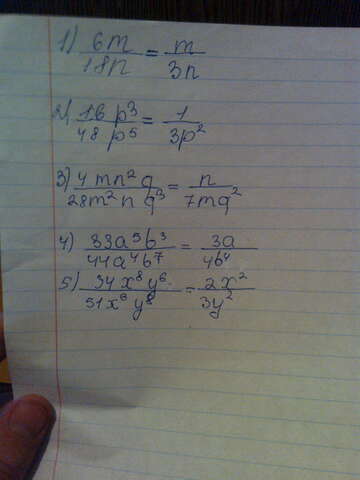 1) 6m/18n = m/3n
2) 16p³/48p⁵ = 1/3p²
3) 4mn²q/28m²nq³ = n/7mq²
4) 33a⁵b³/44a⁴b⁷ = 3a/4b⁴
5) 34x⁸y⁶/51x⁶y⁸ = 2x²/3y²